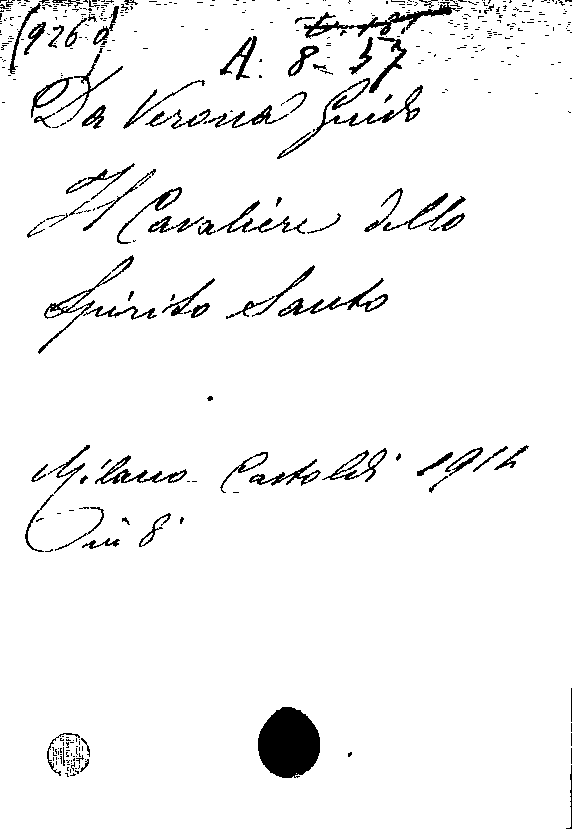 (926
A. 8- 57
Da Verona Guido
Il Cavaliere dello
Spirito Santo
Milano Castoldi 1914
in 8°